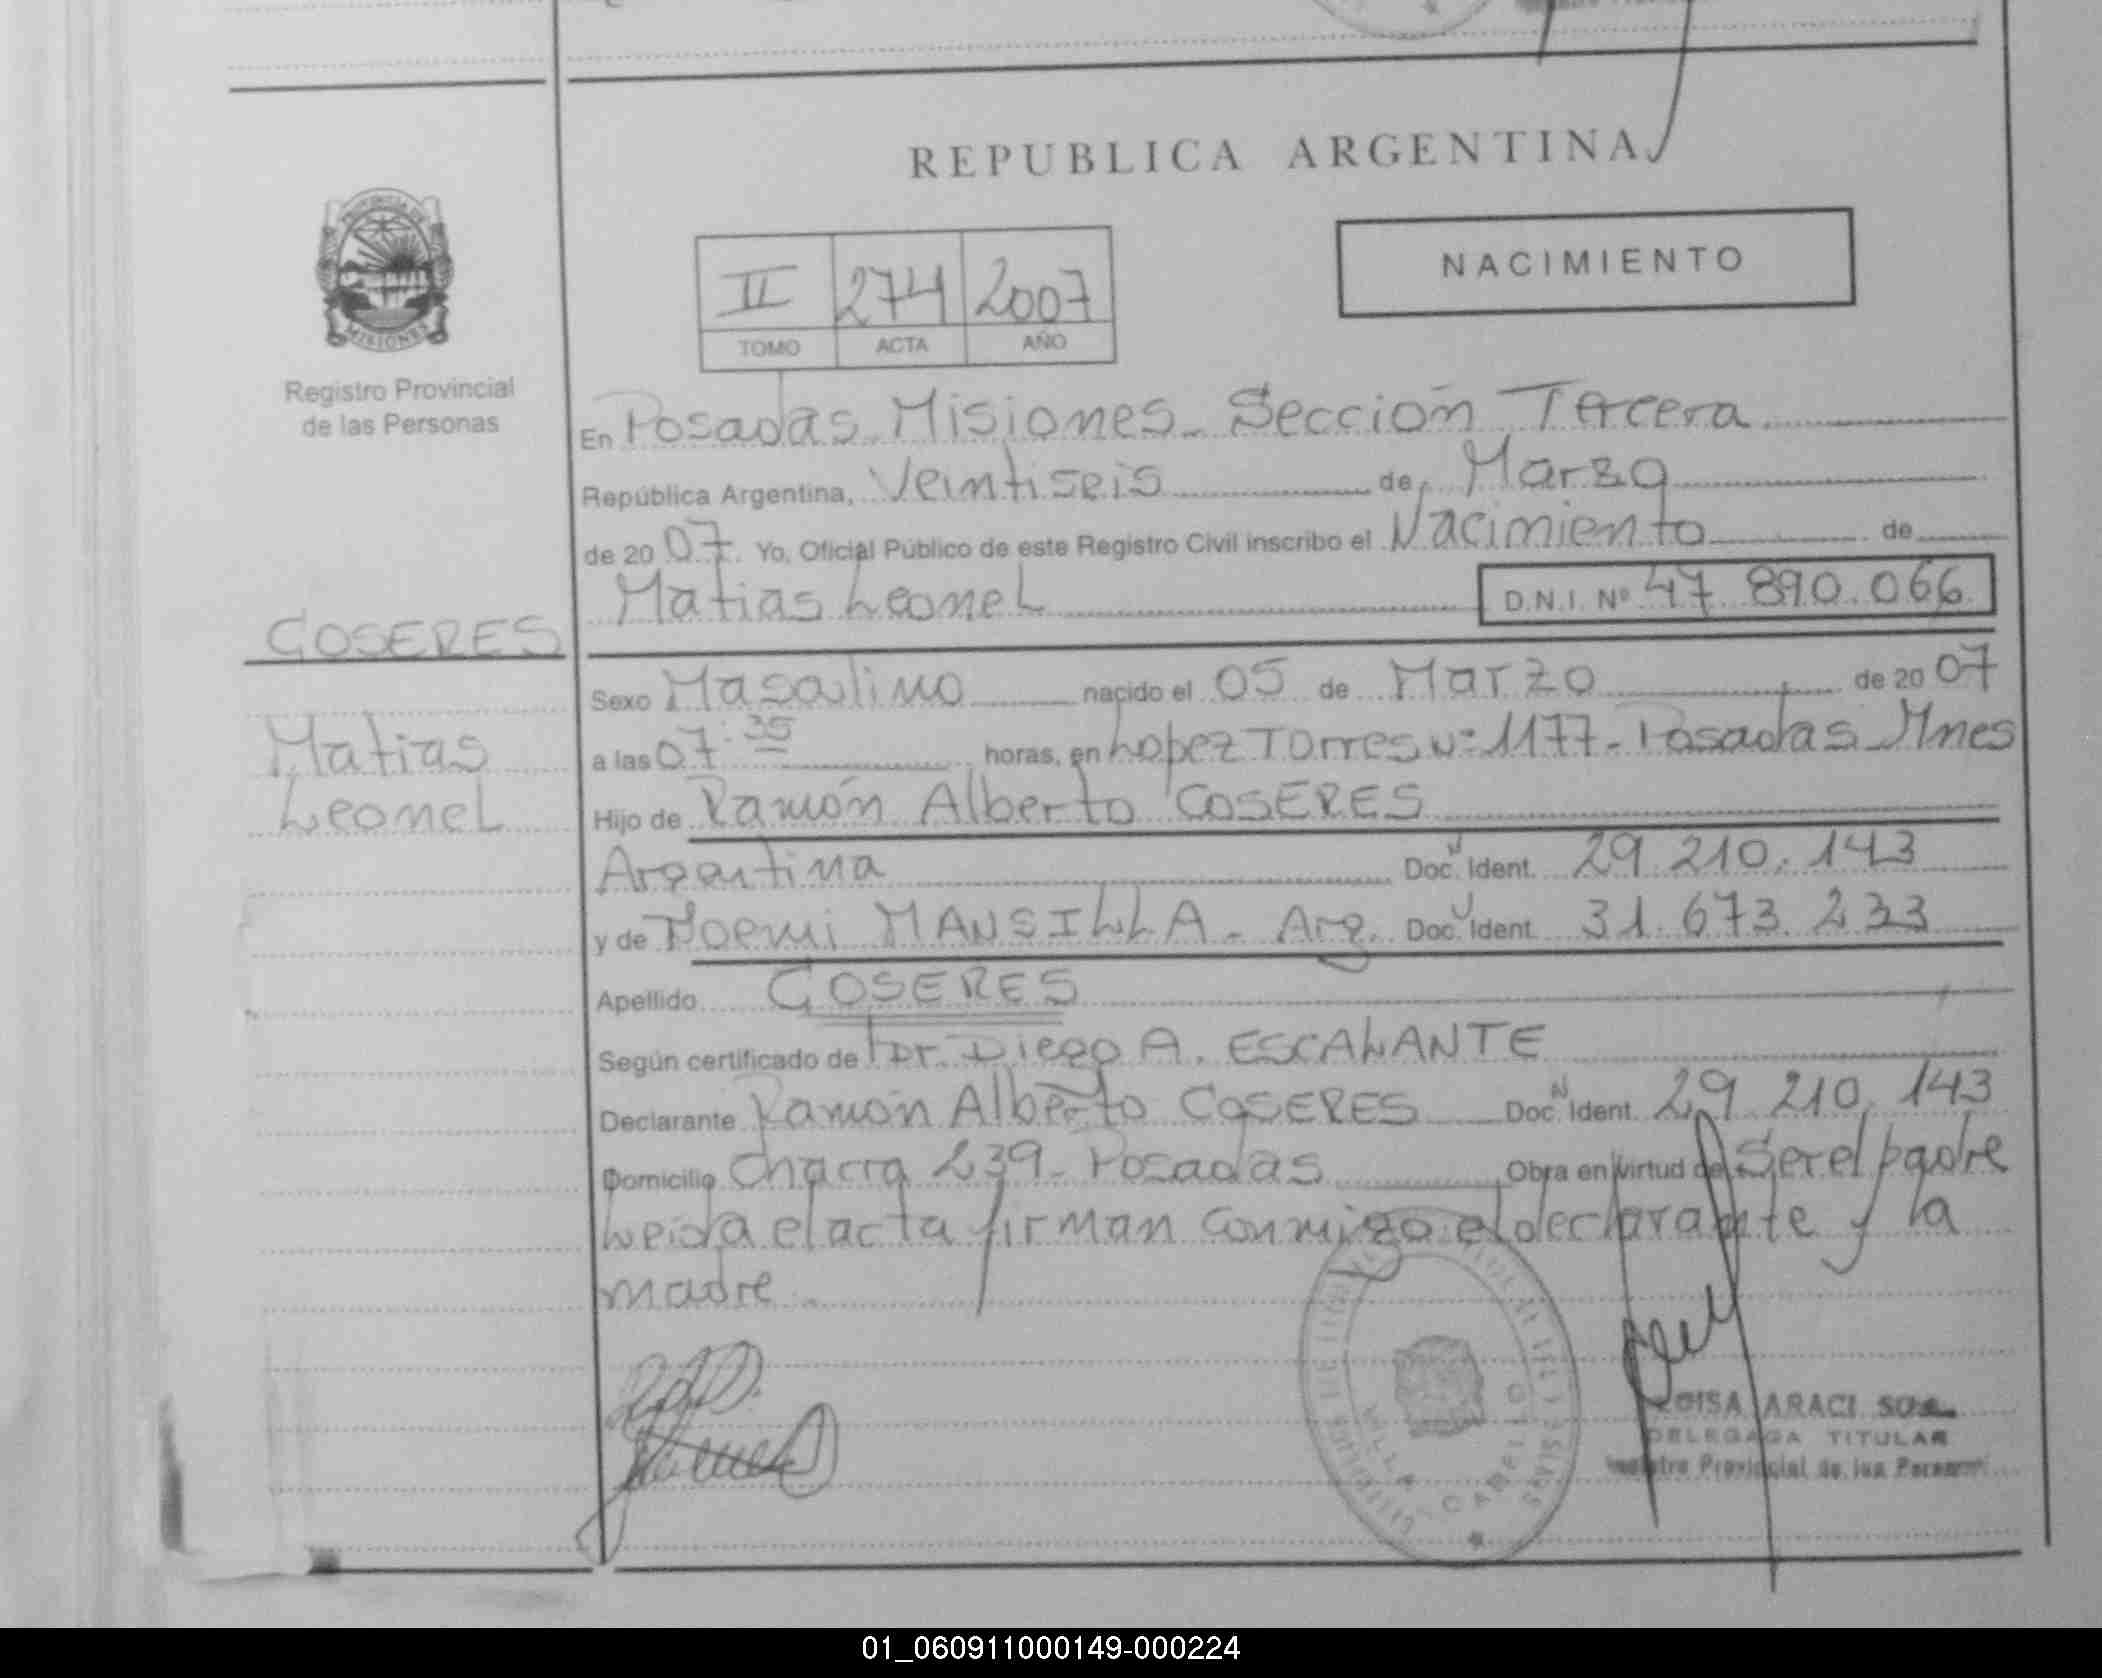 REPUBLICA ARGENTINA
NACIMIENTO
II 274 2007
TOMO ACTA AÑO
PROVINCIA DE
MISIONES
Registro Provincial
de las Personas
En Posadas Misiones - Sección Tercera
República Argentina, Veintiseis de Marzo
de 2007. Yo, Oficial Público de este Registro Civil inscribo el Nacimiento de
Matias Leonel D.N.I. Nº 47.890.066
COSERES
Matias
Leonel
Sexo Masculino nacido el 05 de Marzo de 2007
a las 07:35 horas, en Lopez Torres Nº 1177 - Posadas Mnes
Hijo de Ramón Alberto COSERES
Argentina Doc. Ident. 29.210.143
y de Noemi MANSILLA - Arg. Doc. Ident. 31.673.233
Apellido COSERES
Según certificado de Dr. Diego A. ESCALANTE
Declarante Ramón Alberto COSERES Doc. Ident. 29.210.143
Domicilio Chacra 239 - Posadas Obra en virtud de Ser el padre
Leida el acta firman conmigo el declarante y la
madre.
VILLA CABELLO
ARACI
DELEGADA TITULAR
Registro Provincial de las Personas
01_060911000149-000224